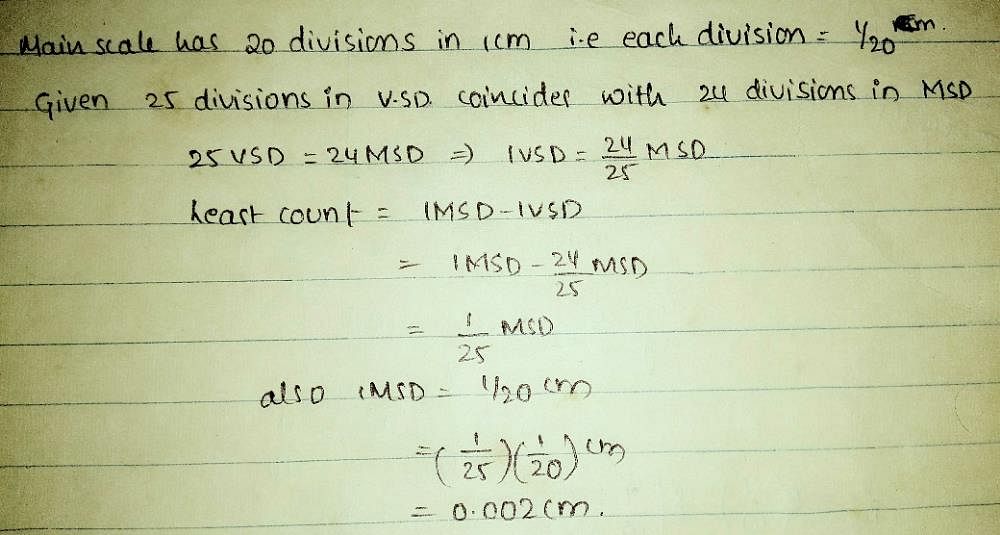 Main scale has 20 divisions in 1cm i.e each division = 1/20 cm.
Given 25 divisions in V.SD. coincides with 24 divisions in MSD
25 VSD = 24 MSD ⇒ 1VSD = 24/25 MSD
Least count = 1MSD - 1VSD
= 1MSD - 24/25 MSD
= 1/25 MSD
also 1MSD = 1/20 cm
= (1/25)(1/20) cm
= 0.002 cm.